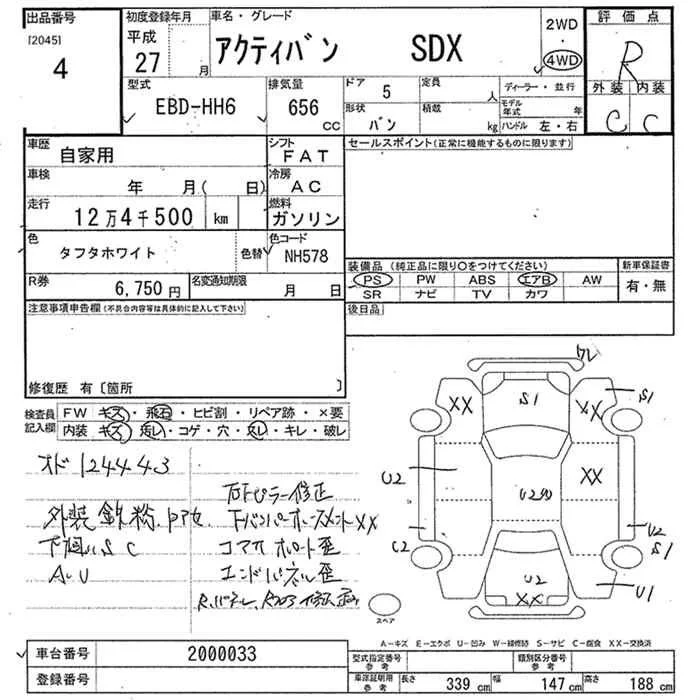 出品番号
[2045]
4
初度登録年月
平成
27 月
車名・グレード
アクティバン SDX
2WD
・
4WD
評価点
R
外装 内装
C C
型式
EBD-HH6
排気量
656 CC
ドア
5
定員
人
形状
バン
積載
kg
ディーラー・並行
モデル年式 年
ハンドル 左・右
車歴
自家用
シフト
FAT
車検
年 月( 日)
冷房
AC
走行
12万4千500 km
燃料
ガソリン
色
タフタホワイト
色替
色コード
NH578
R券
6,750 円
名変通知期限
月 日
セールスポイント(正常に機能するものに限ります)
装備品 (純正品に限り○をつけてください)
PS PW ABS エアB AW
SR ナビ TV カワ
新車保証書
有・無
後日品
注意事項申告欄(不具合内容等は具体的に記入して下さい)
修復歴 有〔箇所 〕
検査員記入欄
FW キズ・飛石・ヒビ割・リペア跡・×要
内装 キズ・汚レ・コゲ・穴・スレ・キレ・破レ
オド 124443
外装 鉄粉
下廻り S C
A.U
右Fピラー修正
XX
コマオ サポート歪
エンドパネル歪
ワレ
S1
XX
S1
XX
U2
XX
U2
C2
U2
S1
U2
XX
U1
スペア
A-キズ E-エクボ U-凹み W-補修跡 S-サビ C-腐食 XX-交換済
車台番号
2000033
登録番号
型式指定番号
参考
類別区分番号
参考
車庫証明用
参考
長さ 339 cm 幅 147 cm 高さ 188 cm